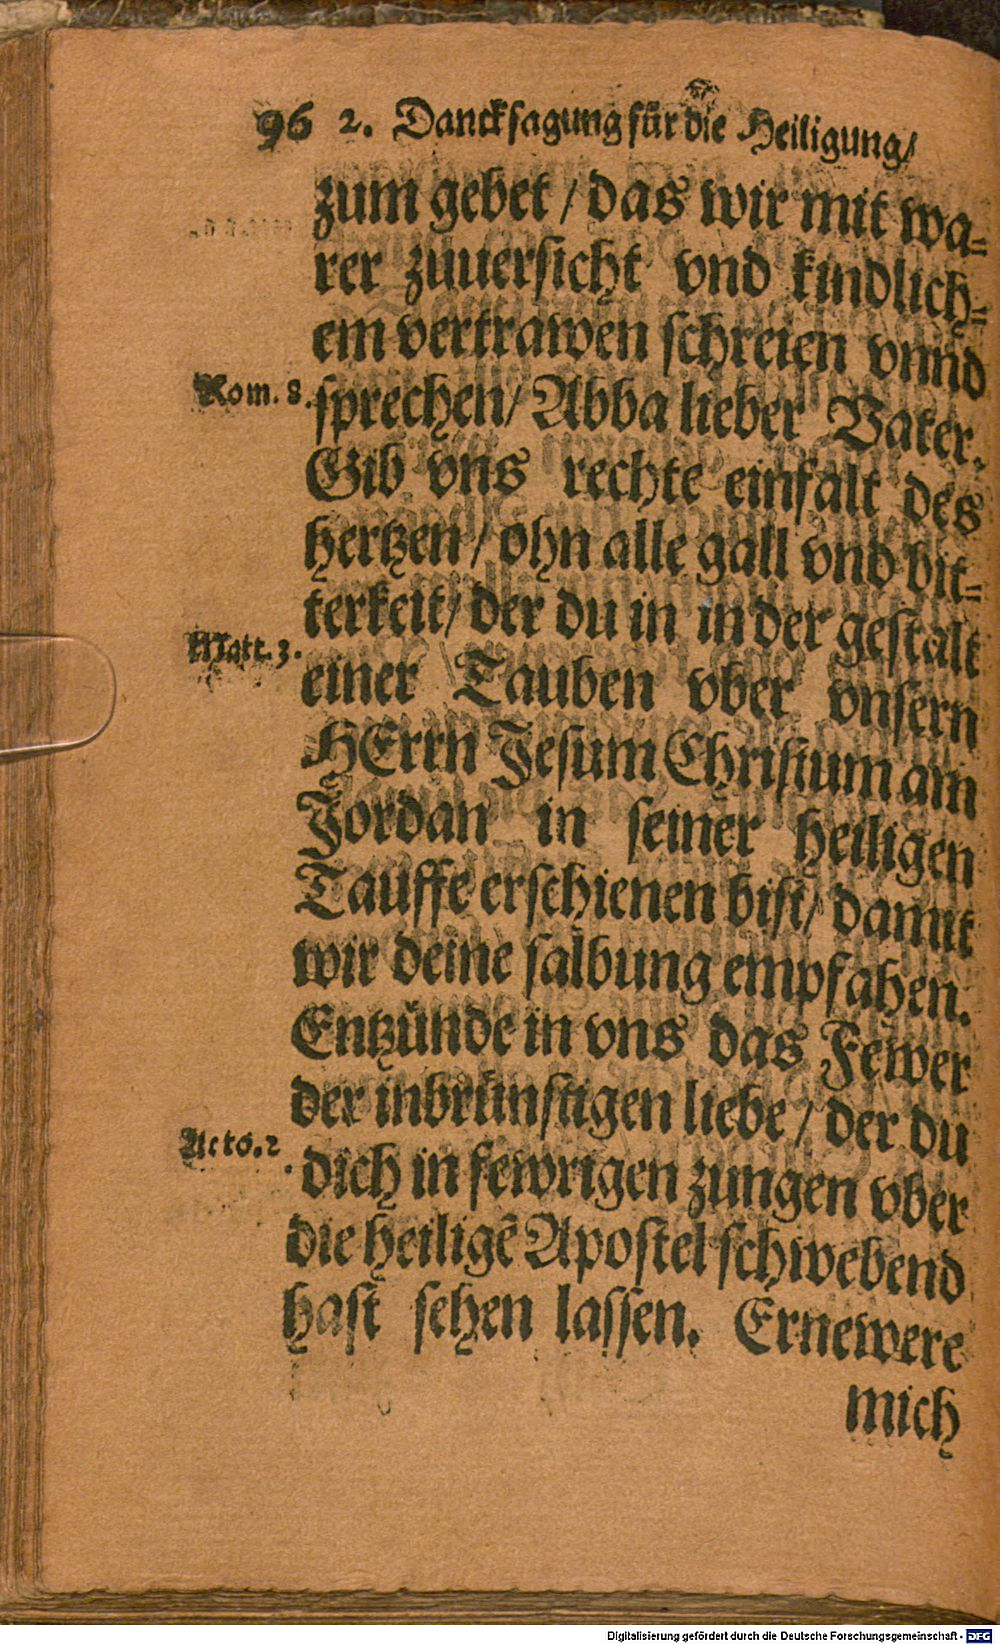 96 2. Dancksagung für die Heiligung/
zum gebet / das wir mit wa-
rer zuuersicht vnd kindlich-
em vertrawen schreien vnnd
Rom. 8. sprechen/ Abba lieber Vater.
Gib vns rechte einfalt des
hertzen / ohn alle gall vnd bit-
terkeit/ der du in in der gestalt
Matt. 3. einer Tauben vber vnsern
HErrn Jesum Christum am
Jordan in seiner heiligen
Tauffe erschienen bist/ damit
wir deine salbung empfahen.
Entzünde in vns das Fewer
der inbrünstigen liebe / der du
Acto. 2. dich in fewrigen zungen vber
die heiligẽ Apostel schwebend
hast sehen lassen. Ernewere
mich
Digitalisierung gefördert durch die Deutsche Forschungsgemeinschaft - DFG